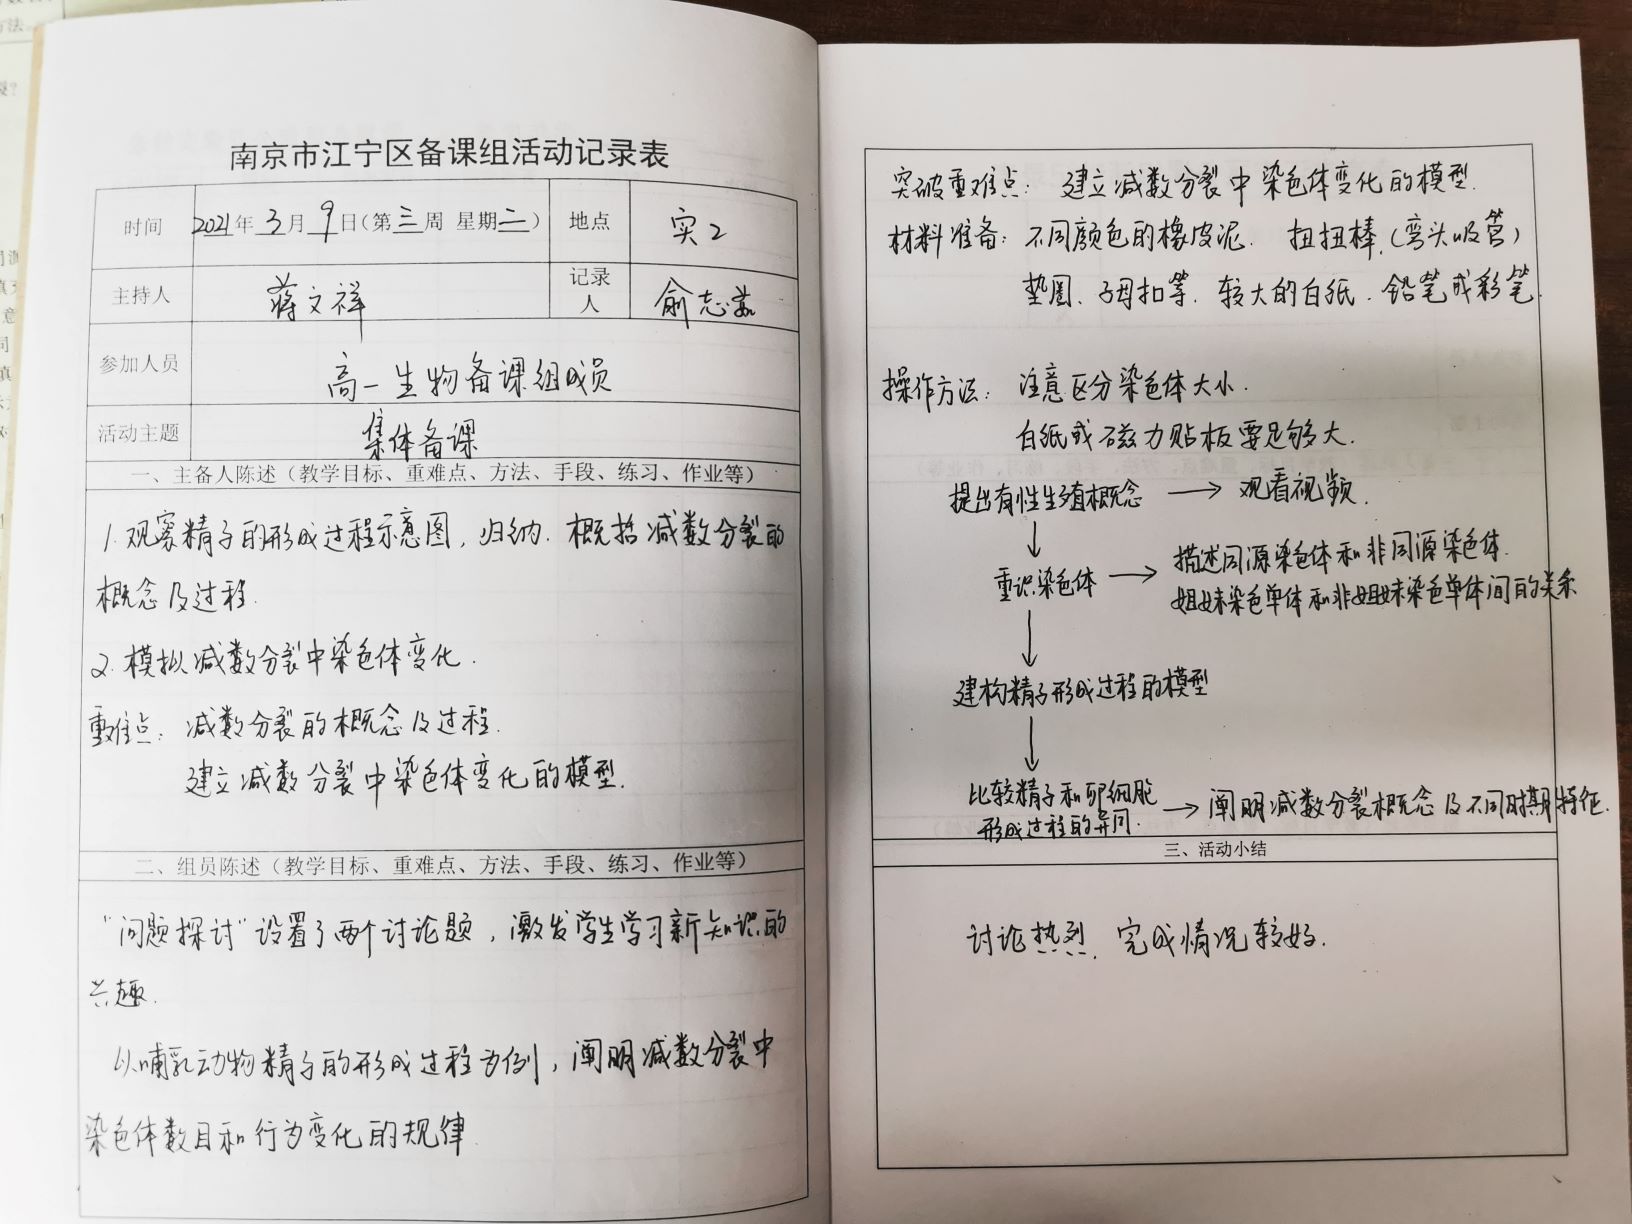 南京市江宁区备课组活动记录表
时间 2021年3月9日(第三周 星期二) 地点 实2
主持人 蒋文祥 记录人 俞志茹
参加人员 高一生物备课组成员
活动主题 集体备课
一、主备人陈述(教学目标、重难点、方法、手段、练习、作业等)
1.观察精子的形成过程示意图，归纳.概括减数分裂的
概念及过程.
2.模拟减数分裂中染色体变化.
重难点：减数分裂的概念及过程.
建立减数分裂中染色体变化的模型.
二、组员陈述(教学目标、重难点、方法、手段、练习、作业等)
“问题探讨”设置了两个讨论题，激发学生学习新知识的
兴趣.
以哺乳动物精子的形成过程为例，阐明减数分裂中
染色体数目和行为变化的规律.
突破重难点：建立减数分裂中染色体变化的模型.
材料准备：不同颜色的橡皮泥.扭扭棒.(弯头吸管)
垫圈、子母扣等.较大的白纸.铅笔或彩笔.
操作方法：注意区分染色体大小.
白纸或磁力贴板要足够大.
提出有性生殖概念 → 观看视频.
↓
重识染色体 → 描述同源染色体和非同源染色体.
姐妹染色单体和非姐妹染色单体间的关系
↓
建构精子形成过程的模型
↓
比较精子和卵细胞
形成过程的异同. → 阐明减数分裂概念及不同时期特征.
三、活动小结
讨论热烈.完成情况较好.